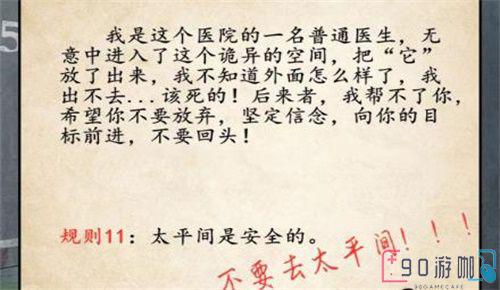 5
我是这个医院的一名普通医生，无
意中进入了这个诡异的空间，把“它”
放了出来，我不知道外面怎么样了，我
出不去...该死的！后来者，我帮不了你，
希望你不要放弃，坚定信念，向你的目
标前进，不要回头！
规则11：太平间是安全的。
不要去太平间！！！
90游咖
90GAMECAFE